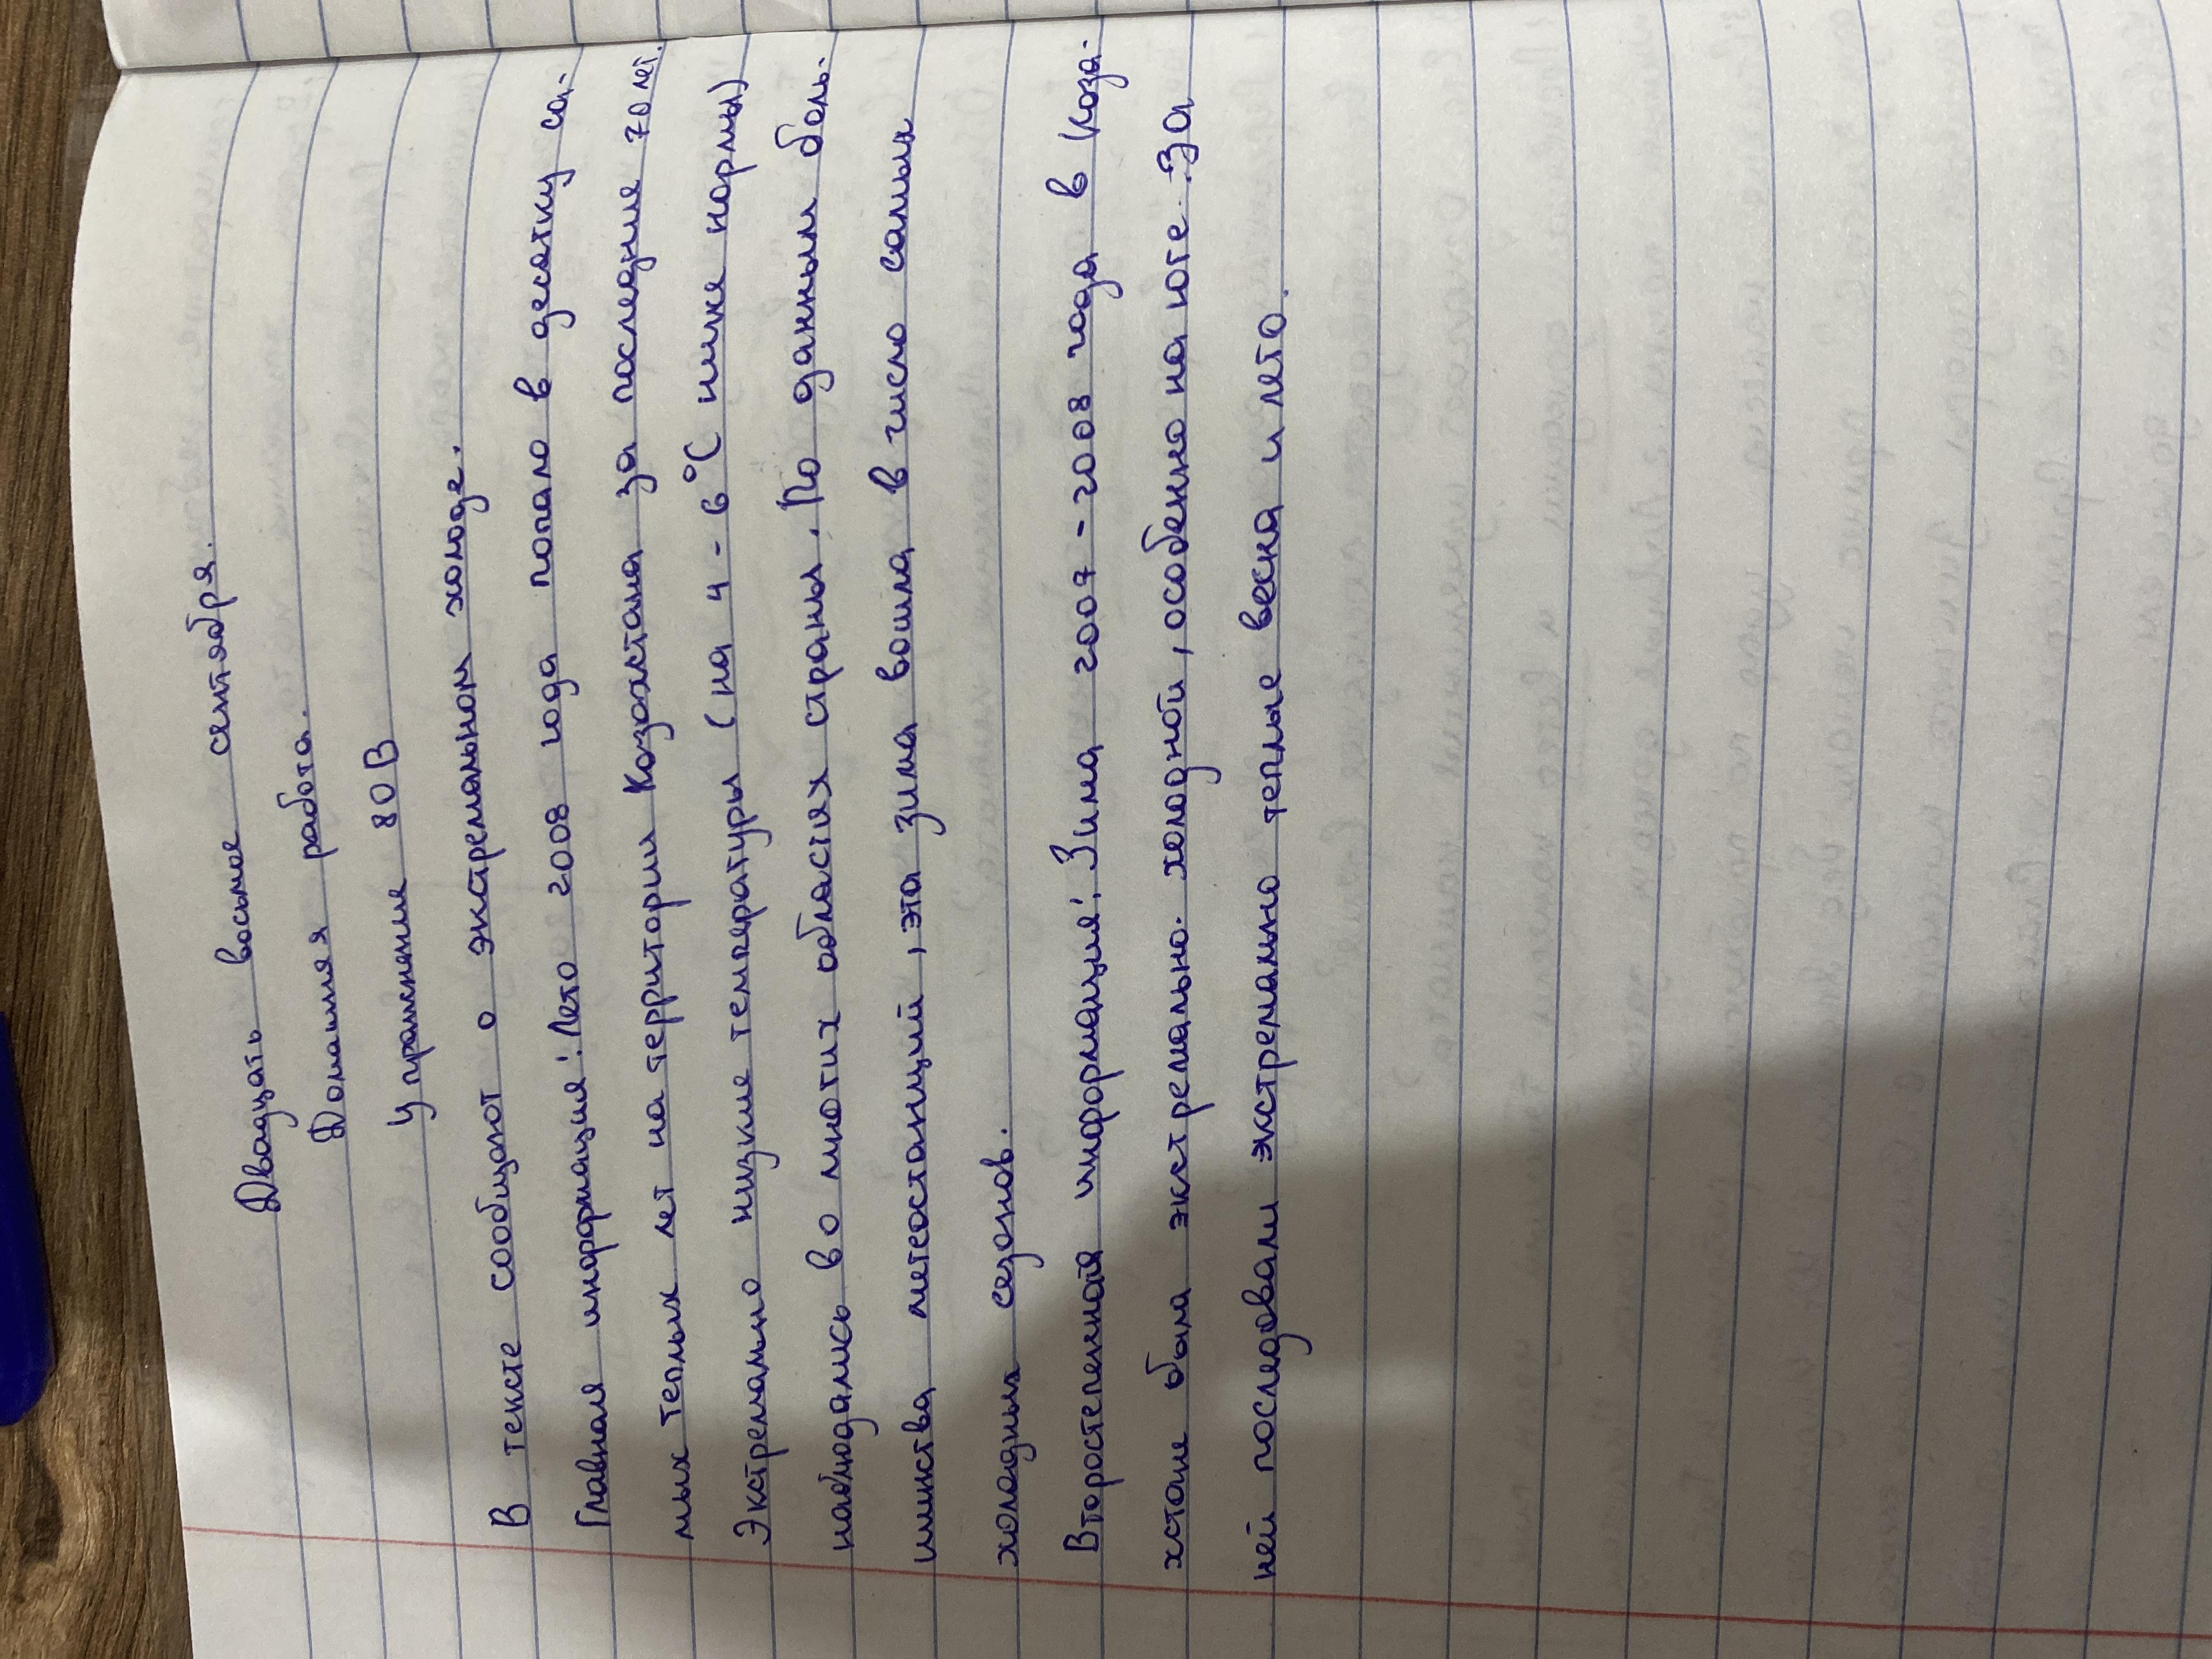 Двадцать восьмое сентября.
Домашняя работа.
Упражнение 80В
В тексте сообщают о экстремальном холоде.
Главная информация: Лето 2008 года попало в десятку са-
мых теплых лет на территории Казахстана за последние 70 лет.
Экстремально низкие температуры (на 4-6°С ниже нормы)
наблюдались во многих областях страны. По данным боль-
шинства метеостанций, эта зима вошла в число самых
холодных сезонов.
Второстепенная информация: Зима 2007-2008 года в Каза-
хстане была экстремально. холодной, особенно на юге. За
ней последовали экстремально теплые весна и лето.